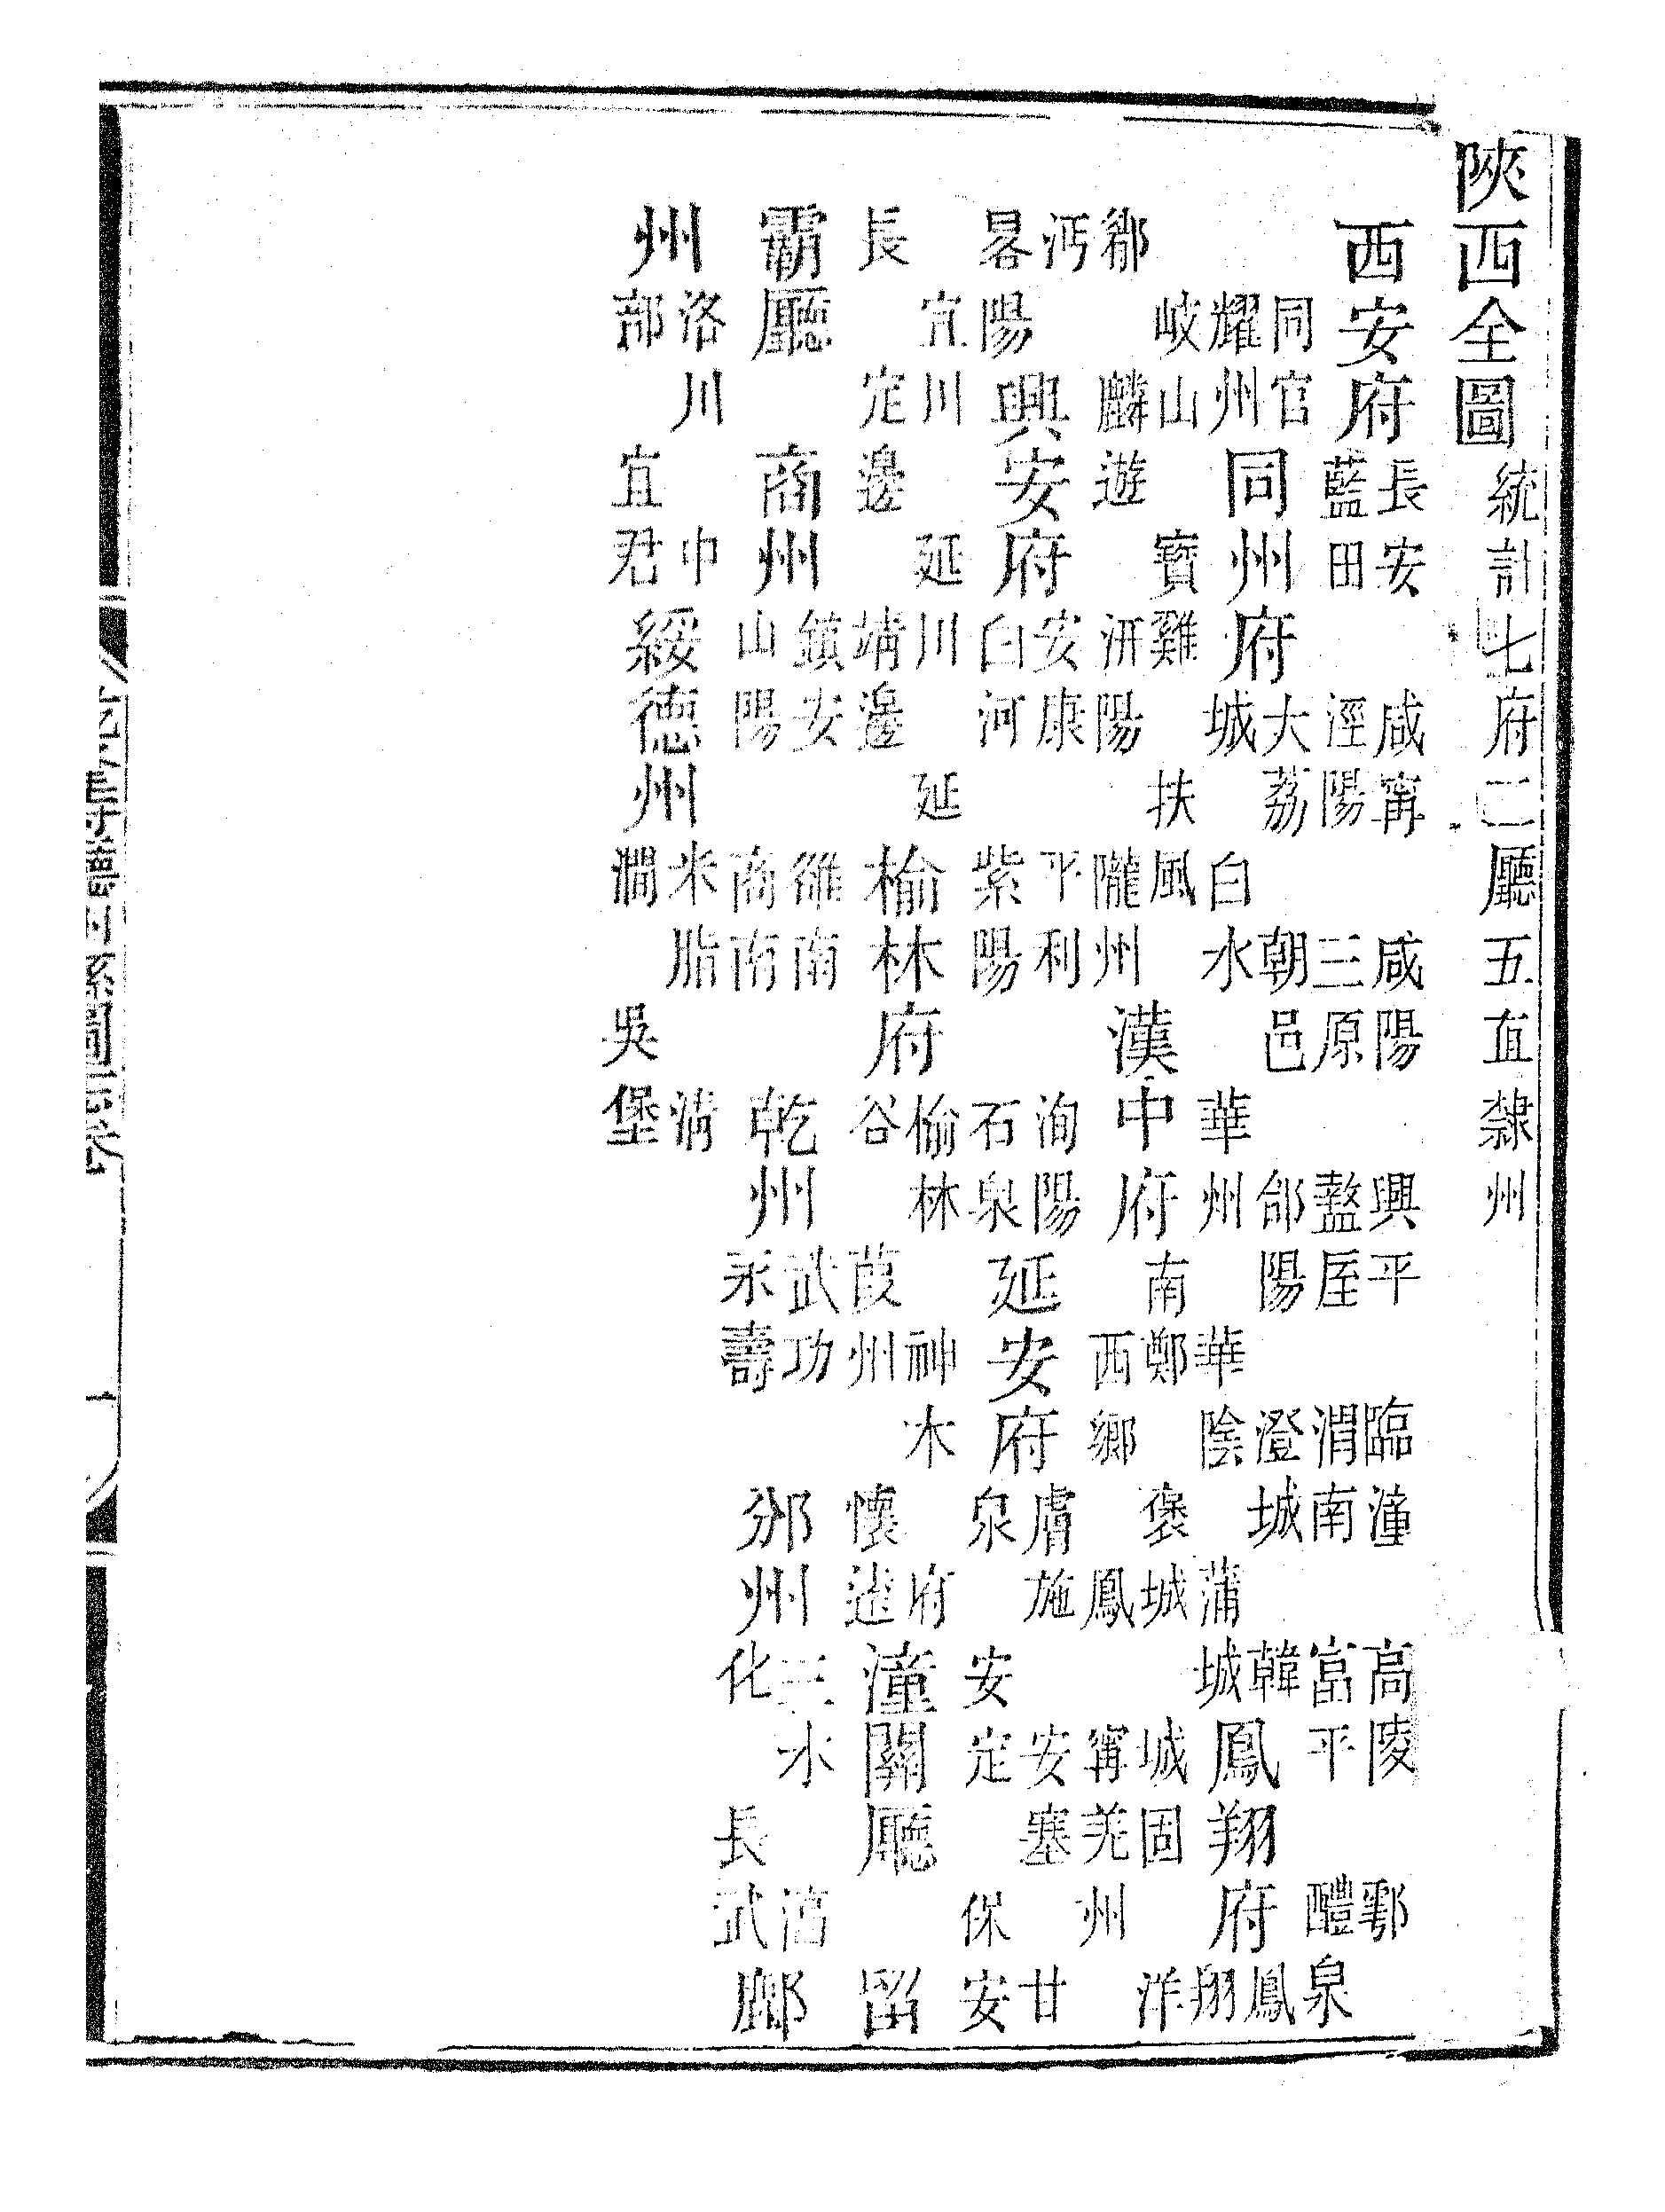 陝西全圖 統計七府二廳五直隸州
西安府 長安 咸寧 咸陽 興平 臨潼 高陵 鄠
藍田 涇陽 三原 盩厔 渭南 富平 醴泉
同官
耀州
同州府 大荔 朝邑 郃陽 澄城 韓
城 白水 華州 華陰 蒲城 城
鳳翔府 鳳
翔
岐山 寶雞 扶風
郿 麟遊 汧陽 隴州
漢中府 南鄭 褒城 城固 洋
西鄉 鳳 寧羌州
沔
畧陽
興安府 安康 平利 洵陽
白河 紫陽 石泉
延安府 膚施 安塞 甘
泉 安定 保安
宜川 延川 延
長 定邊 靖邊
榆林府 榆林 神木 府
谷 葭州 懷遠
潼關廳 留
霸廳 商州 鎮安 雒南
山陽 商南
乾州 武功
永壽
邠州 三水 淳
化 長武
鄜
州 洛川 中
部 宜君
綏德州 米脂 清
澗 吳堡
一